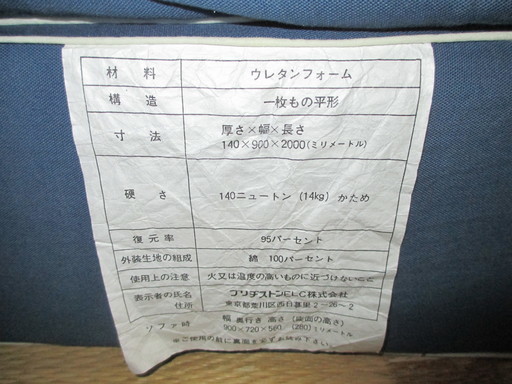 材料 ウレタンフォーム
構造 一枚もの平形
寸法 厚さ×幅×長さ
140×900×2000(ミリメートル)
硬さ 140ニュートン(14kg)かため
復元率 95パーセント
外装生地の組成 綿 100パーセント
使用上の注意 火又は温度の高いものに近づけないこと
表示者の氏名 ブリヂストンELC株式会社
住所 東京都荒川区西日暮里2-26-2
ソファ時 幅 奥行き 高さ(座面の高さ)
900×720×580 (280)ミリメートル
※ご使用の前に裏面を必ずお読み下さい。